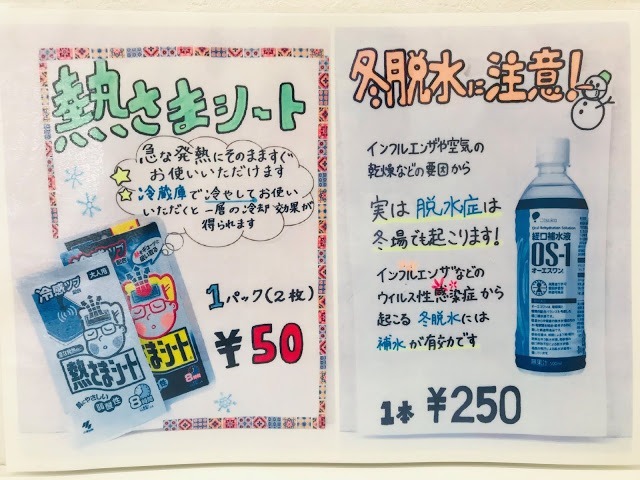 熱さまシート
急な発熱にそのまますぐ
お使いいただけます
冷蔵庫で冷やしてお使い
いただくと一層の冷却効果が
得られます
冷感ツブ
大人用
熱さまシート
肌にやさしい
弱酸性
8時間
1パック(2枚)
¥50
冬脱水に注意!
インフルエンザや空気の
乾燥などの要因から
実は脱水症は
冬場でも起こります!
インフルエンザなどの
ウイルス性感染症から
起こる冬脱水には
補水が有効です
経口補水液
OS-1
オーエスワン
1本 ¥250